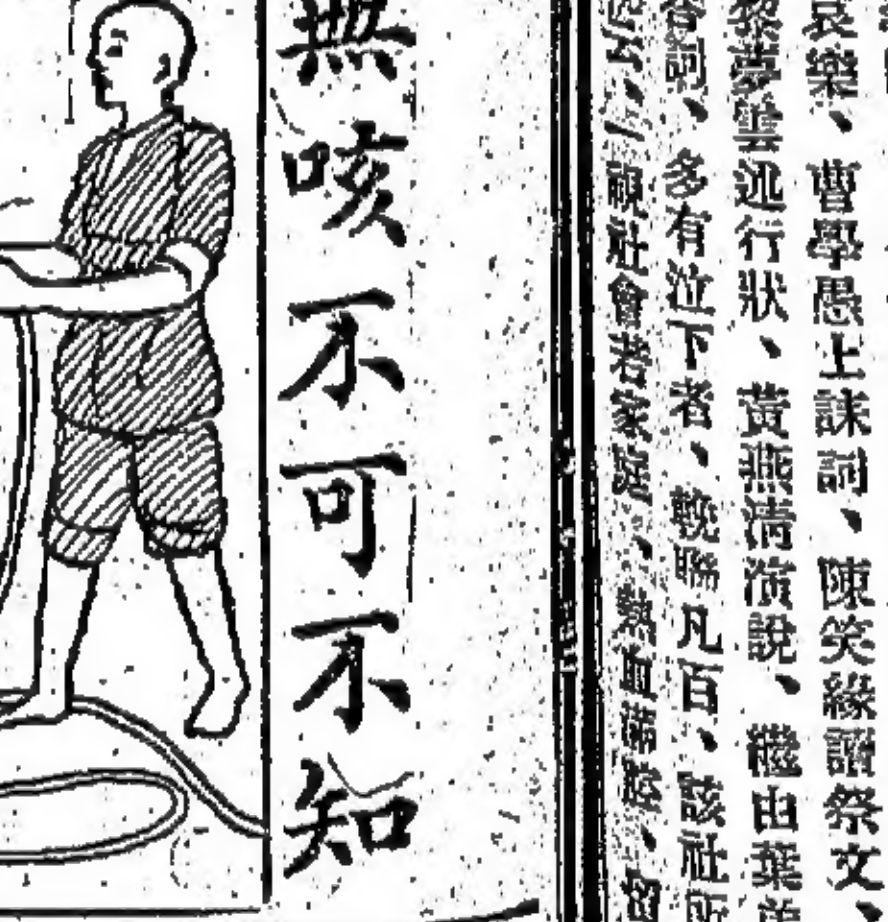 哀樂、曹學愚上誄詞、陳笑緣讀祭文、
黎夢雲述行狀、黃燕清演說、繼由葉
詞、多有泣下者、輓聯凡百、該社所
視社會若家庭、熱血滿腔、
無咳不可不知